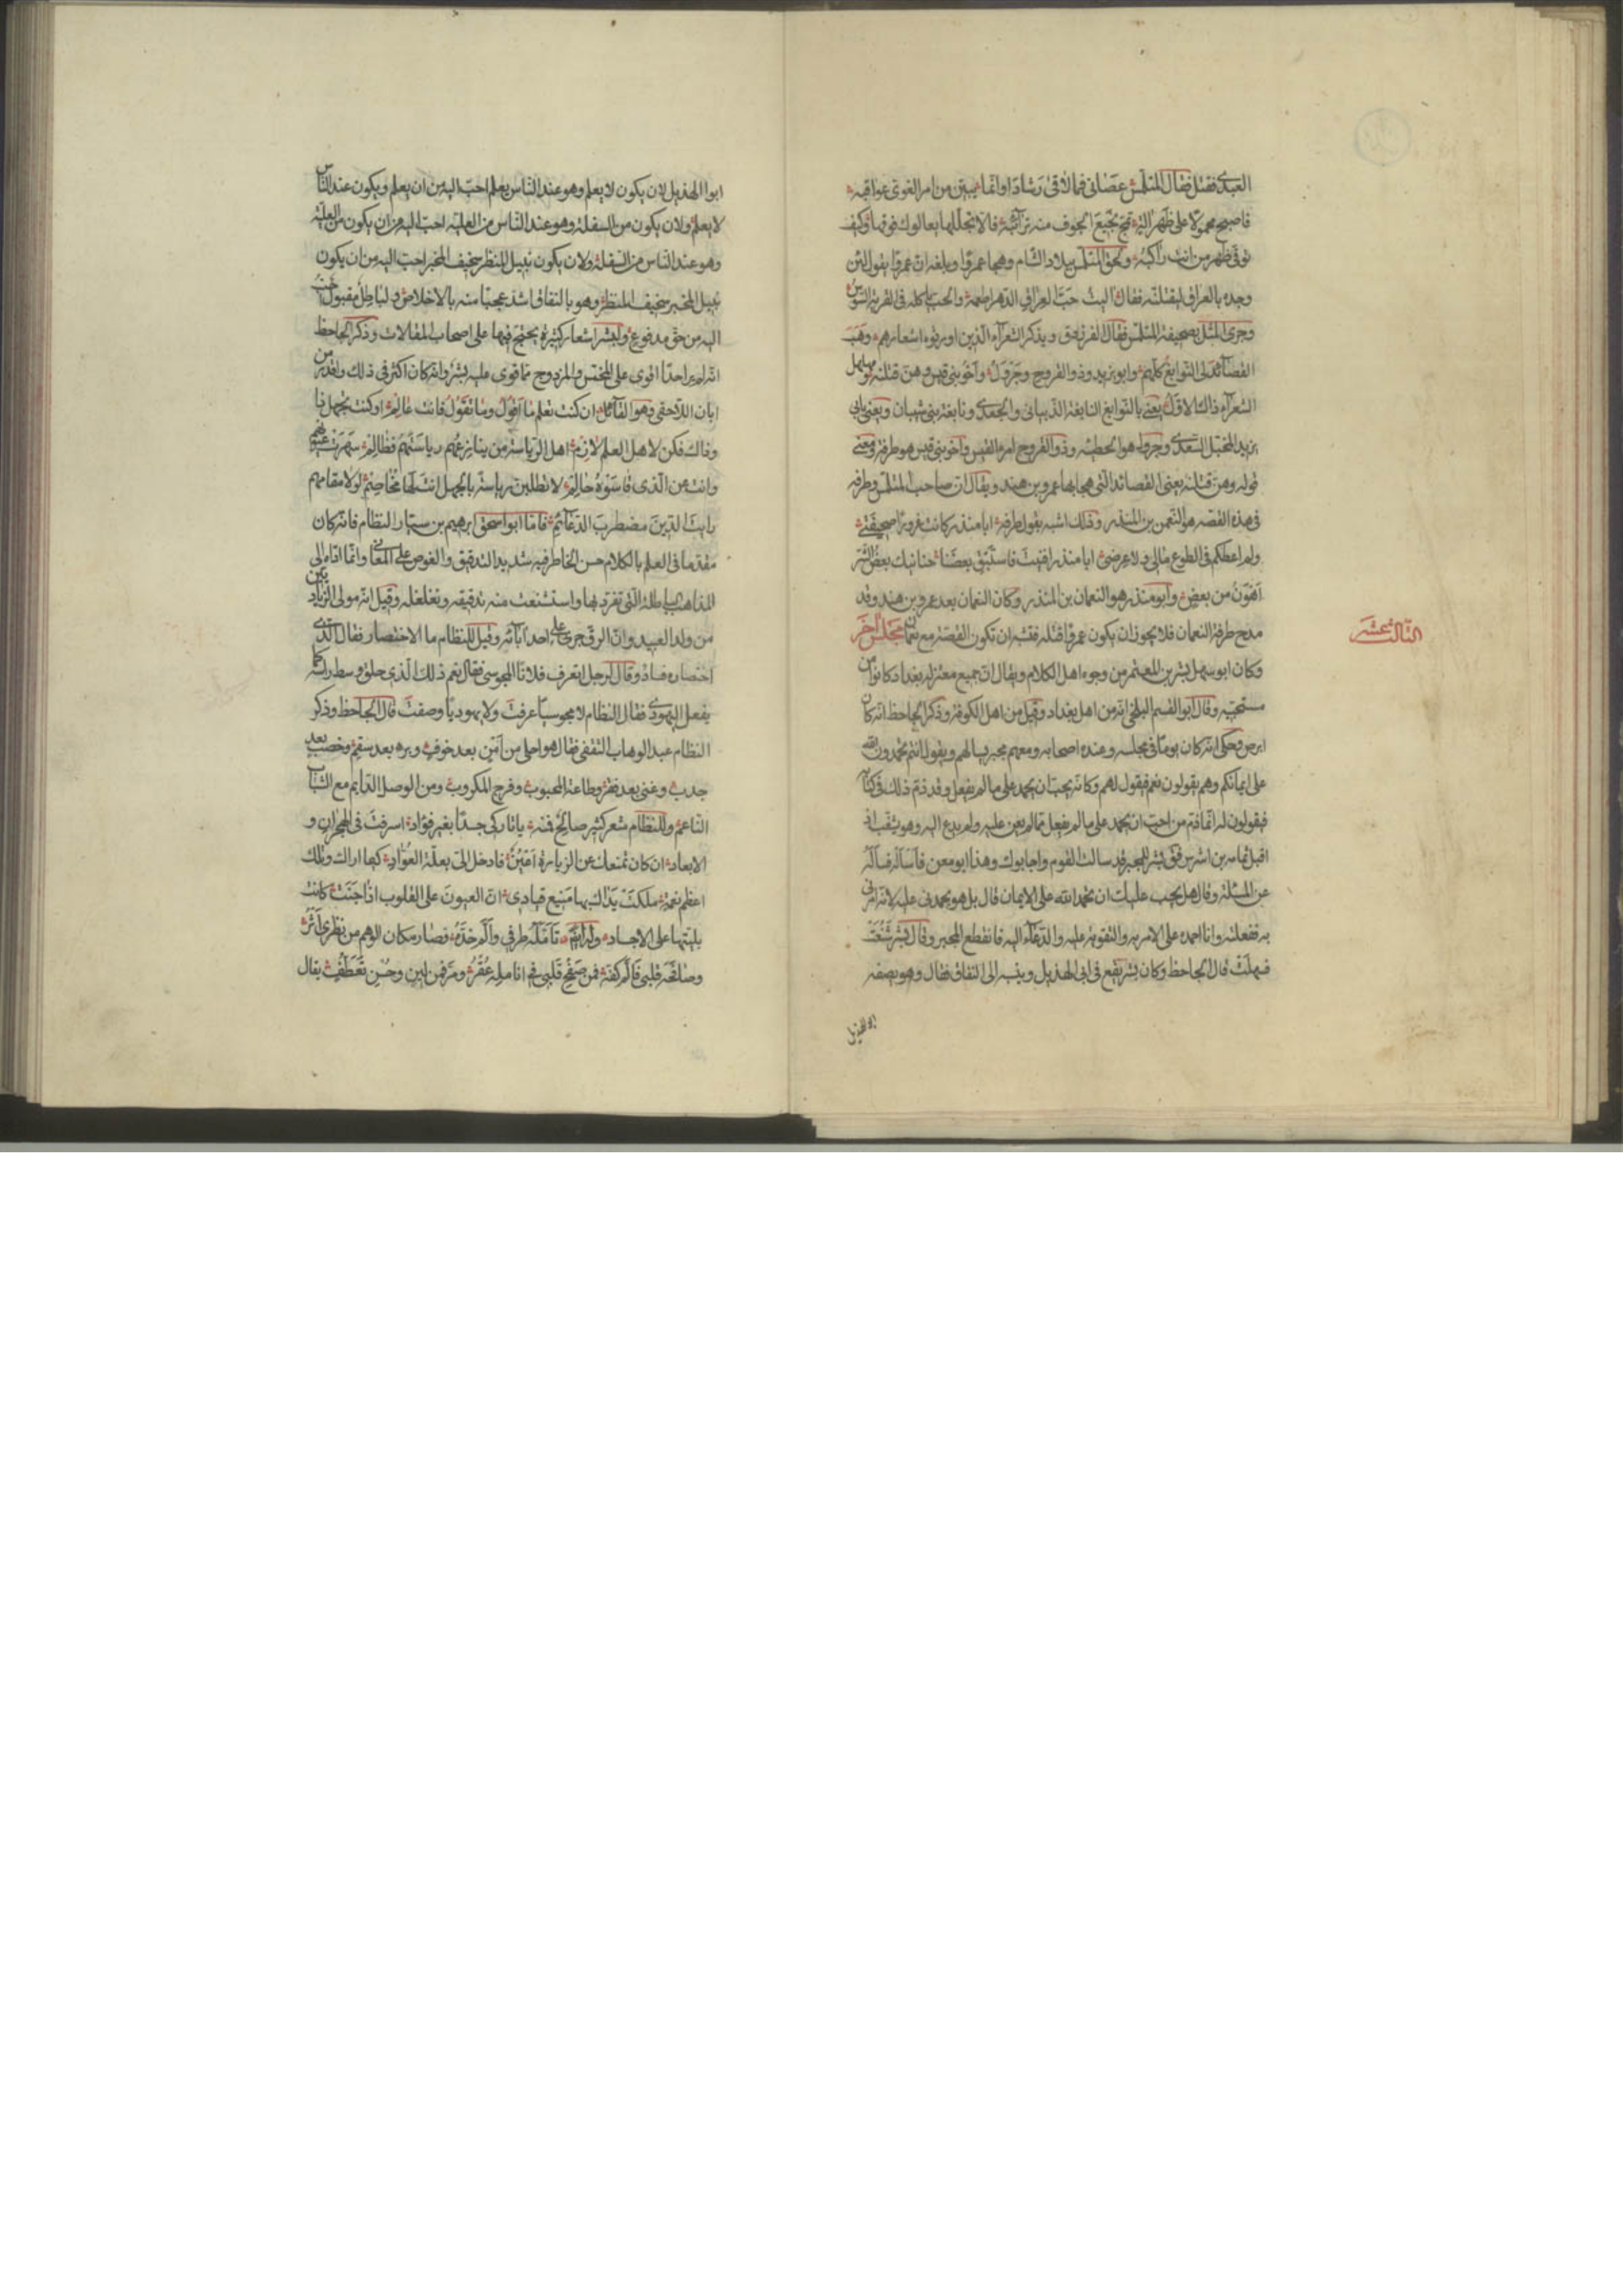 العبدى فقتل فقال المتلمس عصانى فما لاقى رشادا وانما تبين من امر الغوى عواقبه
فاصبح محمولا على ظهر الة تمج نجيع الجوف منه ترائبه فالا تجللها يعالوك فوقها وكيف
توقى ظهر من انت راكبه ولحق المتلمس ببلاد الشام وهجا عمروا وبلغه ان عمروا يقول لئن
وجده بالعراق ليقتلنه فقال اليت حب العراق الدهر اطعمه والحب ياكله فى القرية السوس
وجرى المثل بصحيفة المتلمس فقال الفرزدق ويذكر الشعرآء الذين اورثوه اشعارهم وهب
القصائد لى النوابغ كلهم وابو يزيد وذو القروح وجرول واخو بنى قيس وهن قتلنه ومهلهل
الشعرآء ذاك الاول يعنى بالنوابغ النابغة الذبيانى والجعدى ونابغة بنى شيبان ويعنى بابى
يزيد المخبل السعدى وجرول هو الحطيئه وذو القروح امرء القيس واخو بنى قيس هو طرفة ومعنى
قوله وهن قتلنه يعنى القصائد التى هجا بها عمرو بن هند ويقال ان صاحب المتلمس وطرفه
فى هذه القصه هو النعمن بن المنذر وذلك اشبه بقول طرفه ابا منذر كانت غرورا صحيفتى
ولم اعطكم فى الطوع مالى ولا عرضى ابا منذر افنيت فاستبق بعضنا حنانيك بعض الشر
اهون من بعض وابو منذر هو النعمان بن المنذر وكان النعمان بعد عمرو بن هند وقد
مدح طرفة النعمان فلا يجوز ان يكون عمرو قتله فيشبه ان تكون القصة مع نعمان مجلس اخر
الثالث عشر
وكان ابو سهل بشر بن المعتمر من وجوه اهل الكلام ويقال ان جميع معتزلة بغداد كانوا من
مستجيبيه وقال ابو القسم البلخى انه من اهل بغداد وقيل من اهل الكوفة وذكر الجاحظ انه كان
ابرص وحكى انه كان يوما فى مجلسه وعنده اصحابه ومعهم مجبر يسالهم ويقول انتم تحمدون الله
على ايمانكم وهم يقولون نعم فيقول لهم وكانه يحب ان يحمد على ما لم يفعل وقد ذم ذلك فى كتابه
فيقولون له انما ذم من احب ان يحمد على ما لم يفعل ممن لم يعن عليه ولم يدع اليه وهو يشغب اذ
اقبل ثمامه بن اشرس فقال بشر للمجبر قد سالت القوم واجابوك وهذا ابو معن فاساله فساله
عن المسئلة وقال هل يجب عليك ان تحمد الله على الايمان قال بل هو يحمدنى عليه لانه امرنى
به ففعلته وانا احمده على الامر به والتقوية عليه والدعآء اليه فانقطع المجبر وقال بشر شنعت
فسهلت قال الجاحظ وكان بشر يقع فى ابى الهذيل وينسبه الى النفاق فقال وهو يصفه
ابو الهذيل
ابو الهذيل لان يكون لا يعلم وهو عند الناس يعلم احب اليه من ان يعلم ويكون عند الناس
لا يعلم ولان يكون من السفلة وهو عند الناس من العلية احب اليه من ان يكون من العلية
وهو عند الناس من السفلة ولان يكون نبيل المنظر سخيف المخبر احب اليه من ان يكون
نبيل المخبر سخيف المنظر وهو بالنفاق اشد عجبا منه بالاخلاص ولباطل مقبول احب
اليه من حق مدفوع ولبشر اشعار كثيرة يحتج فيها على اصحاب المقالات وذكر الجاحظ
انه لم ير احدا اقوى على المخمس والمزدوج مما قوى عليه بشر وانه كان اكثر فى ذلك واقدر من
ابان اللاحقى وهو القآئل ان كنت تعلم ما اقول وما تقول فانت عالم او كنت تجهل ذا
وذاك فكن لاهل العلم لازم اهل الرياسة من ينازعهم رياستهم فظالم سهرت عيونهم
وانت من الذى قاسوه حالم لا تطلبن رياسة بالجهل انت لها مخاصم لولا مقامهم
رايت الدين مضطرب الدعآئم فاما ابو اسحق ابرهيم بن سيار النظام فانه كان
مقدما فى العلم بالكلام حسن الخاطر فيه شديد التدقيق والغوص على المعانى وانما اداه الى
المذاهب الباطلة التى تفرد بها واستشنعت منه تدقيقه وتغلغله وقيل انه مولى الزياديين
من ولد العبيد وان الرق جرى على احد ابآئه وقيل للنظام ما الاختصار فقال الذى
اختصاره فساد وقال لرجل اتعرف فلانا المجوسى فقال نعم ذلك الذى حلق وسط راسه كما
يفعل اليهودى فقال النظام لا مجوسيا عرفت ولا يهوديا وصفت قال الجاحظ وذكر
النظام عبد الوهاب الثقفى فقال هو احلى من امن بعد خوف وبرء بعد سقم وخصب بعد
جدب وغنى بعد فقر وطاعة المحبوب وفرج المكروب ومن الوصل الدايم مع الشباب
الناعم وللنظام شعر كثير صالح فمنه يا تاركى جسدا بغير فؤاد اسرفت فى الهجران و
الابعاد ان كان تمنعك عن الزيارة اعين فادخل الى بعلة العواد كيما اراك وتلك
اعظم نعمة ملكت يداك بها منيع قيادى ان العيون على القلوب اذا جنت كانت
بليتها على الاجساد وله ايضا تامله طرفى فالم خده فصار مكان الوهم من نظرى اثر
وصافحه قلبى فالم كفه فمن صفح قلبى فى انامله عقر ومر فمن لين وحسن تعطف يقال